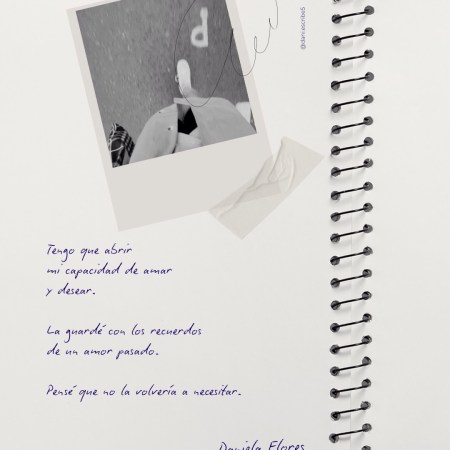 d
@daniescribe5
Tengo que abrir
mi capacidad de amar
y desear.
La guardé con los recuerdos
de un amor pasado.
Pensé que no la volvería a necesitar.
Daniela Flores